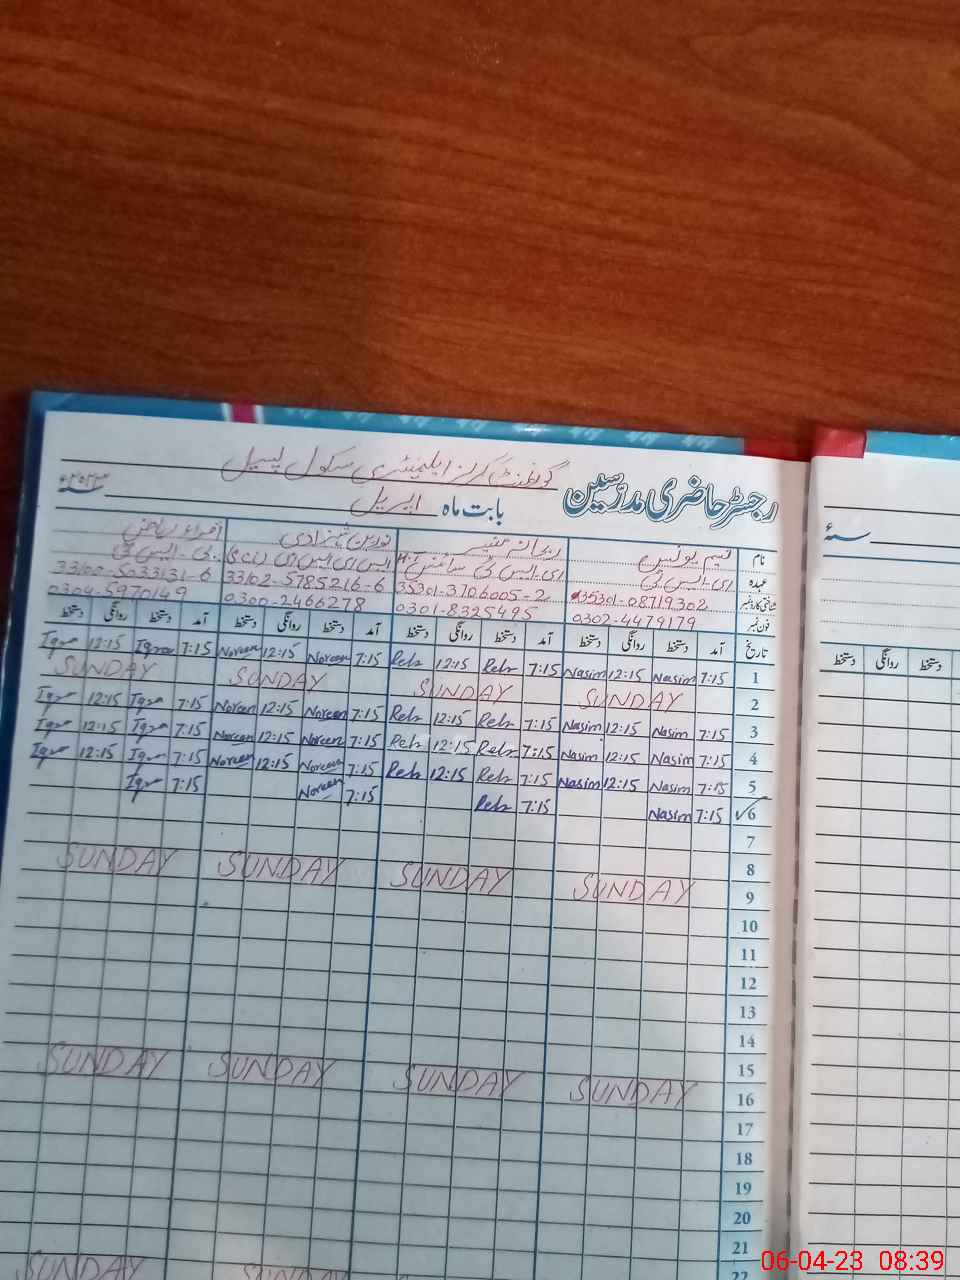 گورنمنٹ گرلز ایلیمنٹری سکول
رجسٹر حاضری مدرسین
بابت ماہ اپریل ۲۰۲۳ء سنۂ
سنۂ
نام نسیم یونس ریحانہ نورین شہزادی اقراء ریاض
عہدہ ای۔ایس۔ٹی ای۔ایس ٹی سائنس H.T ایس ایس ای (sci) پی۔ایس ٹی
شناختی کارڈ نمبر 35301-08719302 35301-3706005-2 33102-5785216-6 33100-5033131-6
فون نمبر 0302-4479179 0301-8325495 0300-2466278 0304-5970149
تاریخ آمد دستخط روانگی دستخط آمد دستخط روانگی دستخط آمد دستخط روانگی دستخط آمد دستخط روانگی دستخط
دستخط روانگی دستخط
1 7:15 Nasim 12:15 Nasim 7:15 Reh 12:15 Reh 7:15 Noreen 12:15 Noreen 7:15 Iqra 12:15 Iqra
2 SUNDAY SUNDAY SUNDAY SUNDAY
3 7:15 Nasim 12:15 Nasim 7:15 Reh 12:15 Reh 7:15 Noreen 12:15 Noreen 7:15 Iqra 12:15 Iqra
4 7:15 Nasim 12:15 Nasim 7:15 Reh 12:15 Reh 7:15 Noreen 12:15 Noreen 7:15 Iqra 12:15 Iqra
5 7:15 Nasim 12:15 Nasim 7:15 Reh 12:15 Reh 7:15 Noreen 12:15 Noreen 7:15 Iqra 12:15 Iqra
6 7:15 Nasim 7:15 Reh 7:15 Noreen 7:15 Iqra
7
8
9 SUNDAY SUNDAY SUNDAY SUNDAY
10
11
12
13
14
15
16 SUNDAY SUNDAY SUNDAY SUNDAY
17
18
19
20
21
22 SUNDAY SUNDAY
06-04-23 08:39